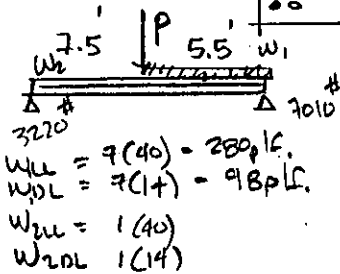 7.5' P 5.5' w₁
w₂
3220# 7010#
W₁LL = 7(40) = 280plf.
W₁DL = 7(14) = 98plf.
W₂LL = 1(40)
W₂DL 1(14)